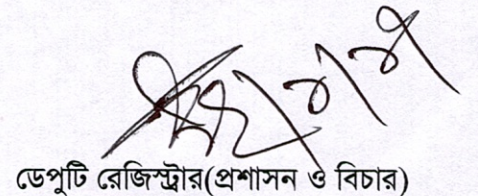 ডেপুটি রেজিস্ট্রার(প্রশাসন ও বিচার)